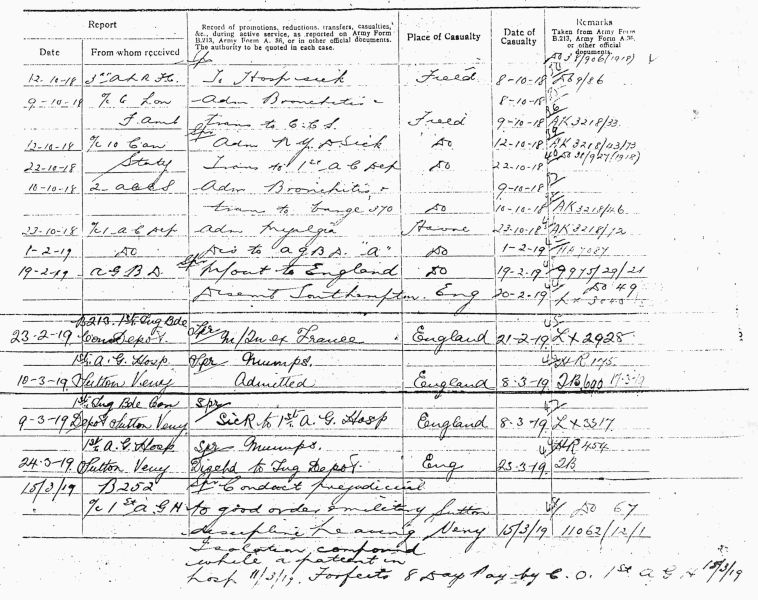 Report
Record of promotions, reductions, transfers, casualties, &c., during active service, as reported on Army Form B.213, Army Form A. 36, or in other official documents. The authority to be quoted in each case.
Place of Casualty
Date of Casualty
Remarks
Taken from Army Form B.213, Army Form A.36, or other official documents.
Date From whom received
DO 38/906/1918)
12-10-18 3rd A L R F Spr To Hosp sick Field 8-10-18 DO 9/86
9-10-18 C Lon Adm Bronchitis 8-10-18
F. Amb trans to C.C.S. Field 9-10-18 AK 3218/33
13-10-18 10 Can Spr Adm N.Y.D. Sick Do 12-10-18 AK 3218/43/73
22-10-18 Staty Trans to 1st A C Dep Do 22-10-18 (1918)
10-10-18 2 Adm Bronchitis 9-10-18
trans to 10-10-18 AK 3218/46
23-10-18 1 A C Dep Adm Myalgia Havre 23-10-18 AK 3218/72
1-2-19 Do Dis to A G B D. "A" Do 1-2-19
19-2-19 A G B D. Spr M/out to England Do 19-2-19 9975/29/21
Disemt Southampton. Eng 20-2-19 DO 49
B213. 1st Tng Bde
23-2-19 Con Depôt. Spr M/In ex France England 21-2-19 LX 2928
1st A. G. Hosp. Spr Mumps. HR 175.
10-3-19 Sutton Veny Admitted England 8-3-19 17-3-19
1st Tng Bde Con Spr
9-3-19 Depot Sutton Veny Sick to 1st A. G. Hosp England 8-3-19 LX 3317.
1st A. G. Hosp Spr Mumps. HR 454
24-3-19 Sutton Veny. Disch'd to Tng Depôt. Eng 23-3-19
15/3/19 B252 Spr Conduct prejudicial
1st A G H to good order & military Sutton DO 67
discipline he aving Veny 15/3/19 11062/12/1
Isolation compound
while a patient in
hosp 11/3/19. Forfeits 8 Day Pay by C. O. 1st A G H 15/3/19